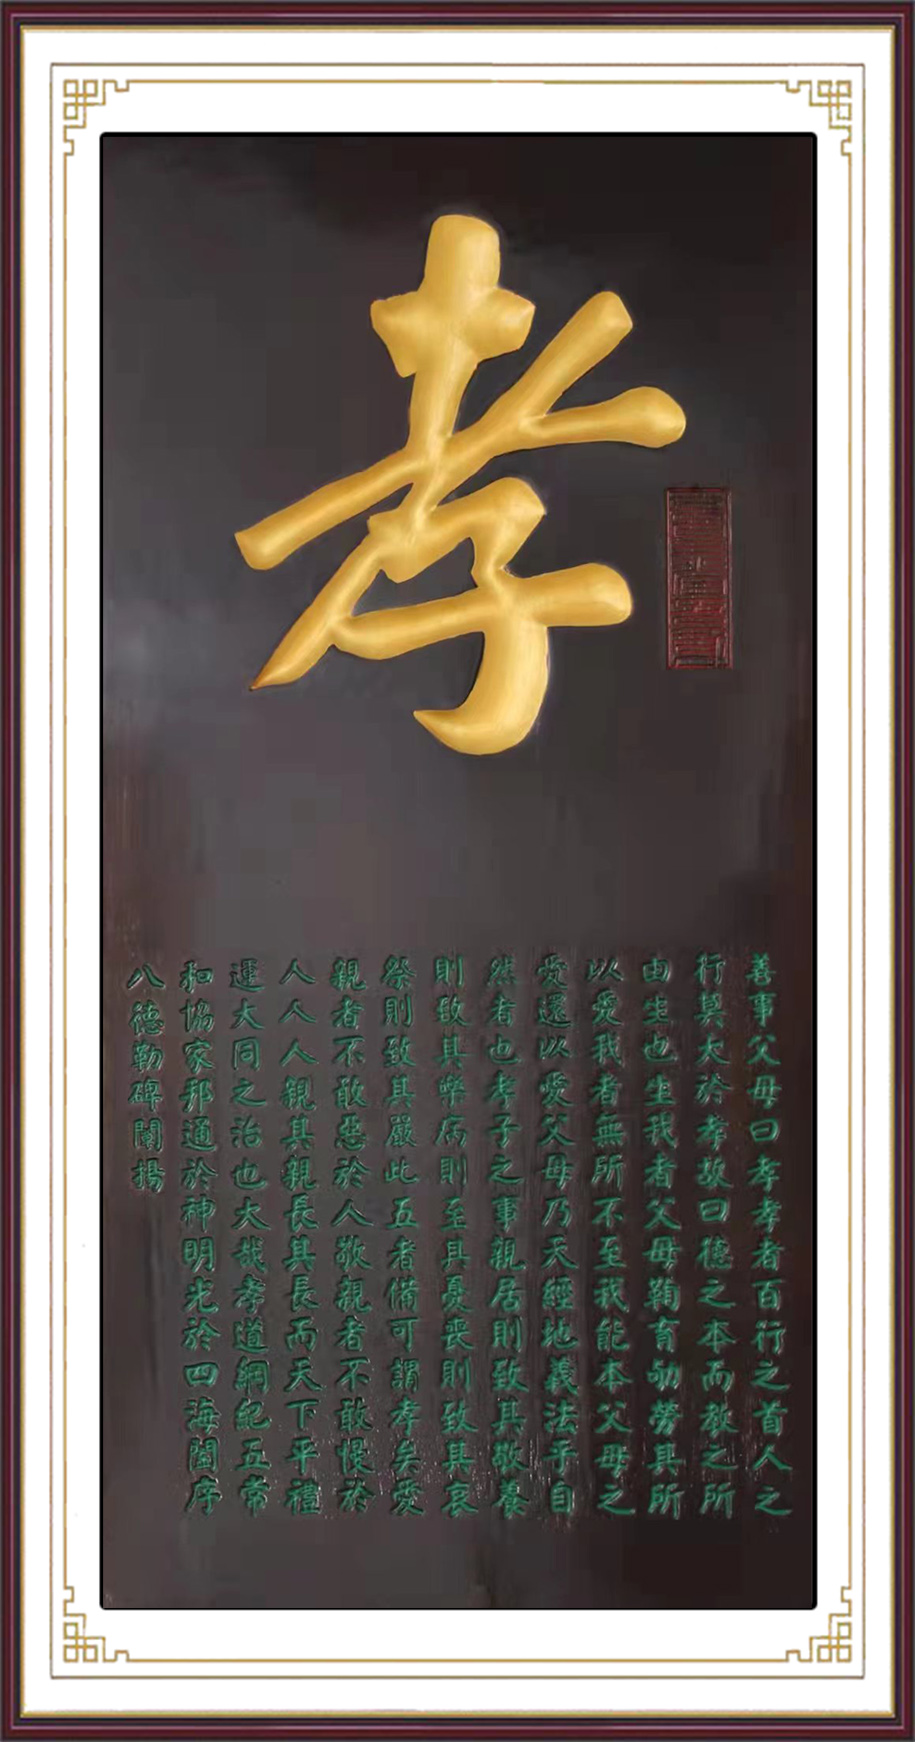 孝
善事父母曰孝孝者百行之首人之
行莫大於孝故曰德之本而教之所
由生也生我者父母鞠育劬勞其所
以愛我者無所不至我能本父母之
愛還以愛父母乃天經地義法乎自
然者也孝子之事親居則致其敬養
則致其樂病則至其憂喪則致其哀
祭則致其嚴此五者備可謂孝矣愛
親者不敢惡於人敬親者不敢慢於
人人人親其親長其長而天下平禮
運大同之治也大哉孝道綱紀五常
和協家邦通於神明光於四海闔序
八德勒碑闡揚